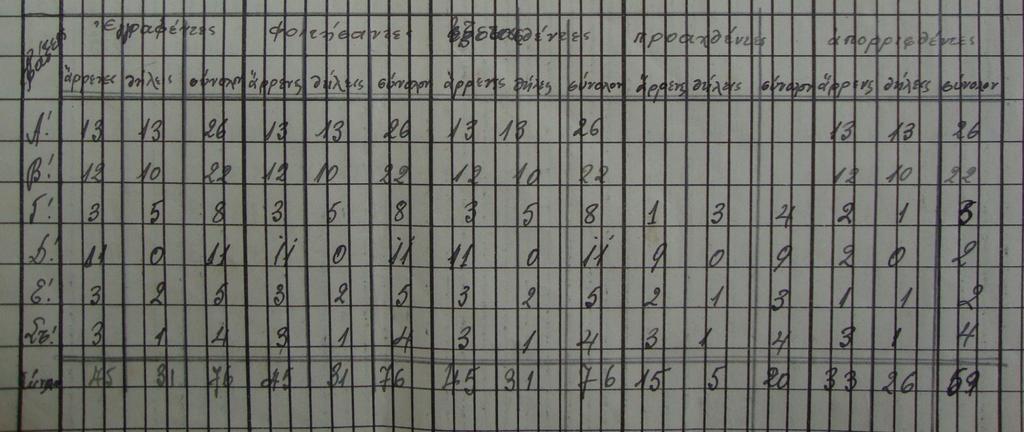 Ἐγγραφέντες φοιτήσαντες προαχθέντες ἀπορριφθέντες
ἄρρενες θήλεις σύνολον ἄρρενς θήλεις σύνολον ἄρρενς θήλεις σύνολον ἄρρενς θήλεις σύνολον ἄρρενς θήλεις σύνολον
Α! 13 13 26 13 13 26 13 13 26 13 13 26
Β! 12 10 22 12 10 22 12 10 22 12 10 22
Γ! 3 5 8 3 5 8 3 5 8 1 3 4 2 1 3
Δ! 11 0 11 11 0 11 11 0 11 9 0 9 2 0 2
Ε! 3 2 5 3 2 5 3 2 5 2 1 3 1 1 2
Στ! 3 1 4 3 1 4 3 1 4 3 1 4 3 1 4
45 31 76 45 31 76 45 31 76 15 5 20 33 26 59